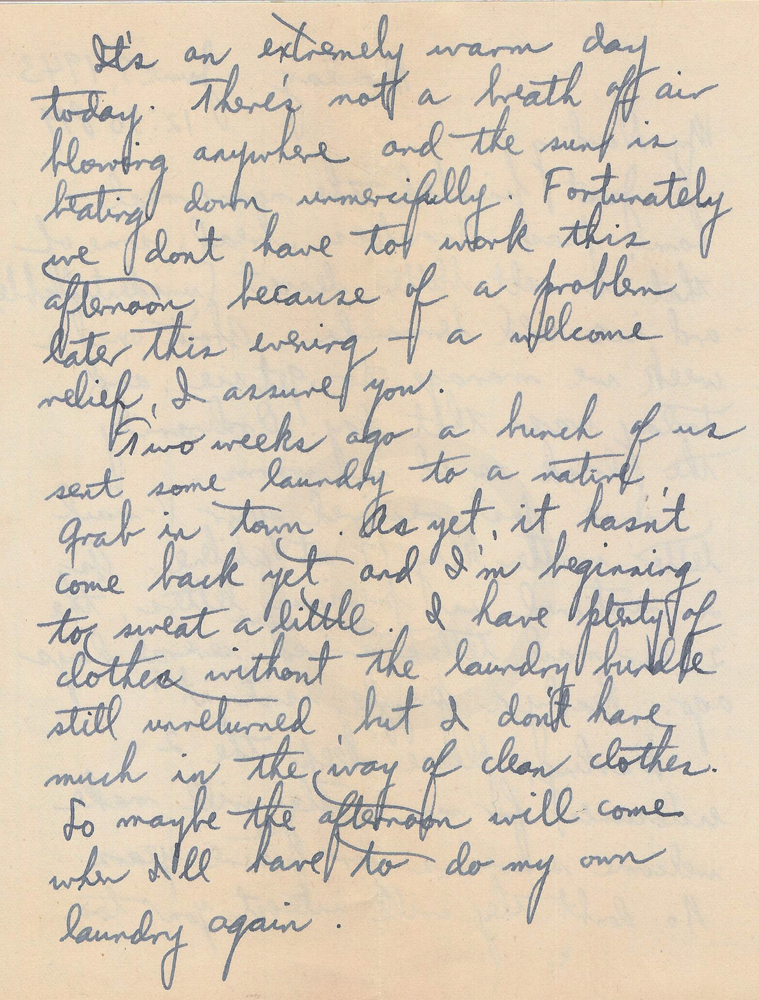 It's an extremely warm day
today. There's not a breath of air
blowing anywhere and the sun is
beating down unmercifully. Fortunately
we don't have to work this
afternoon because of a problem
later this evening – a welcome
relief, I assure you.
Two weeks ago a bunch of us
sent some laundry to a native
Grab in town. As yet, it hasn't
come back yet and I'm beginning
to sweat a little. I have plenty of
clothes without the laundry bundle
still unreturned, but I don't have
much in the way of clean clothes.
So maybe the afternoon will come
when I'll have to do my own
laundry again.